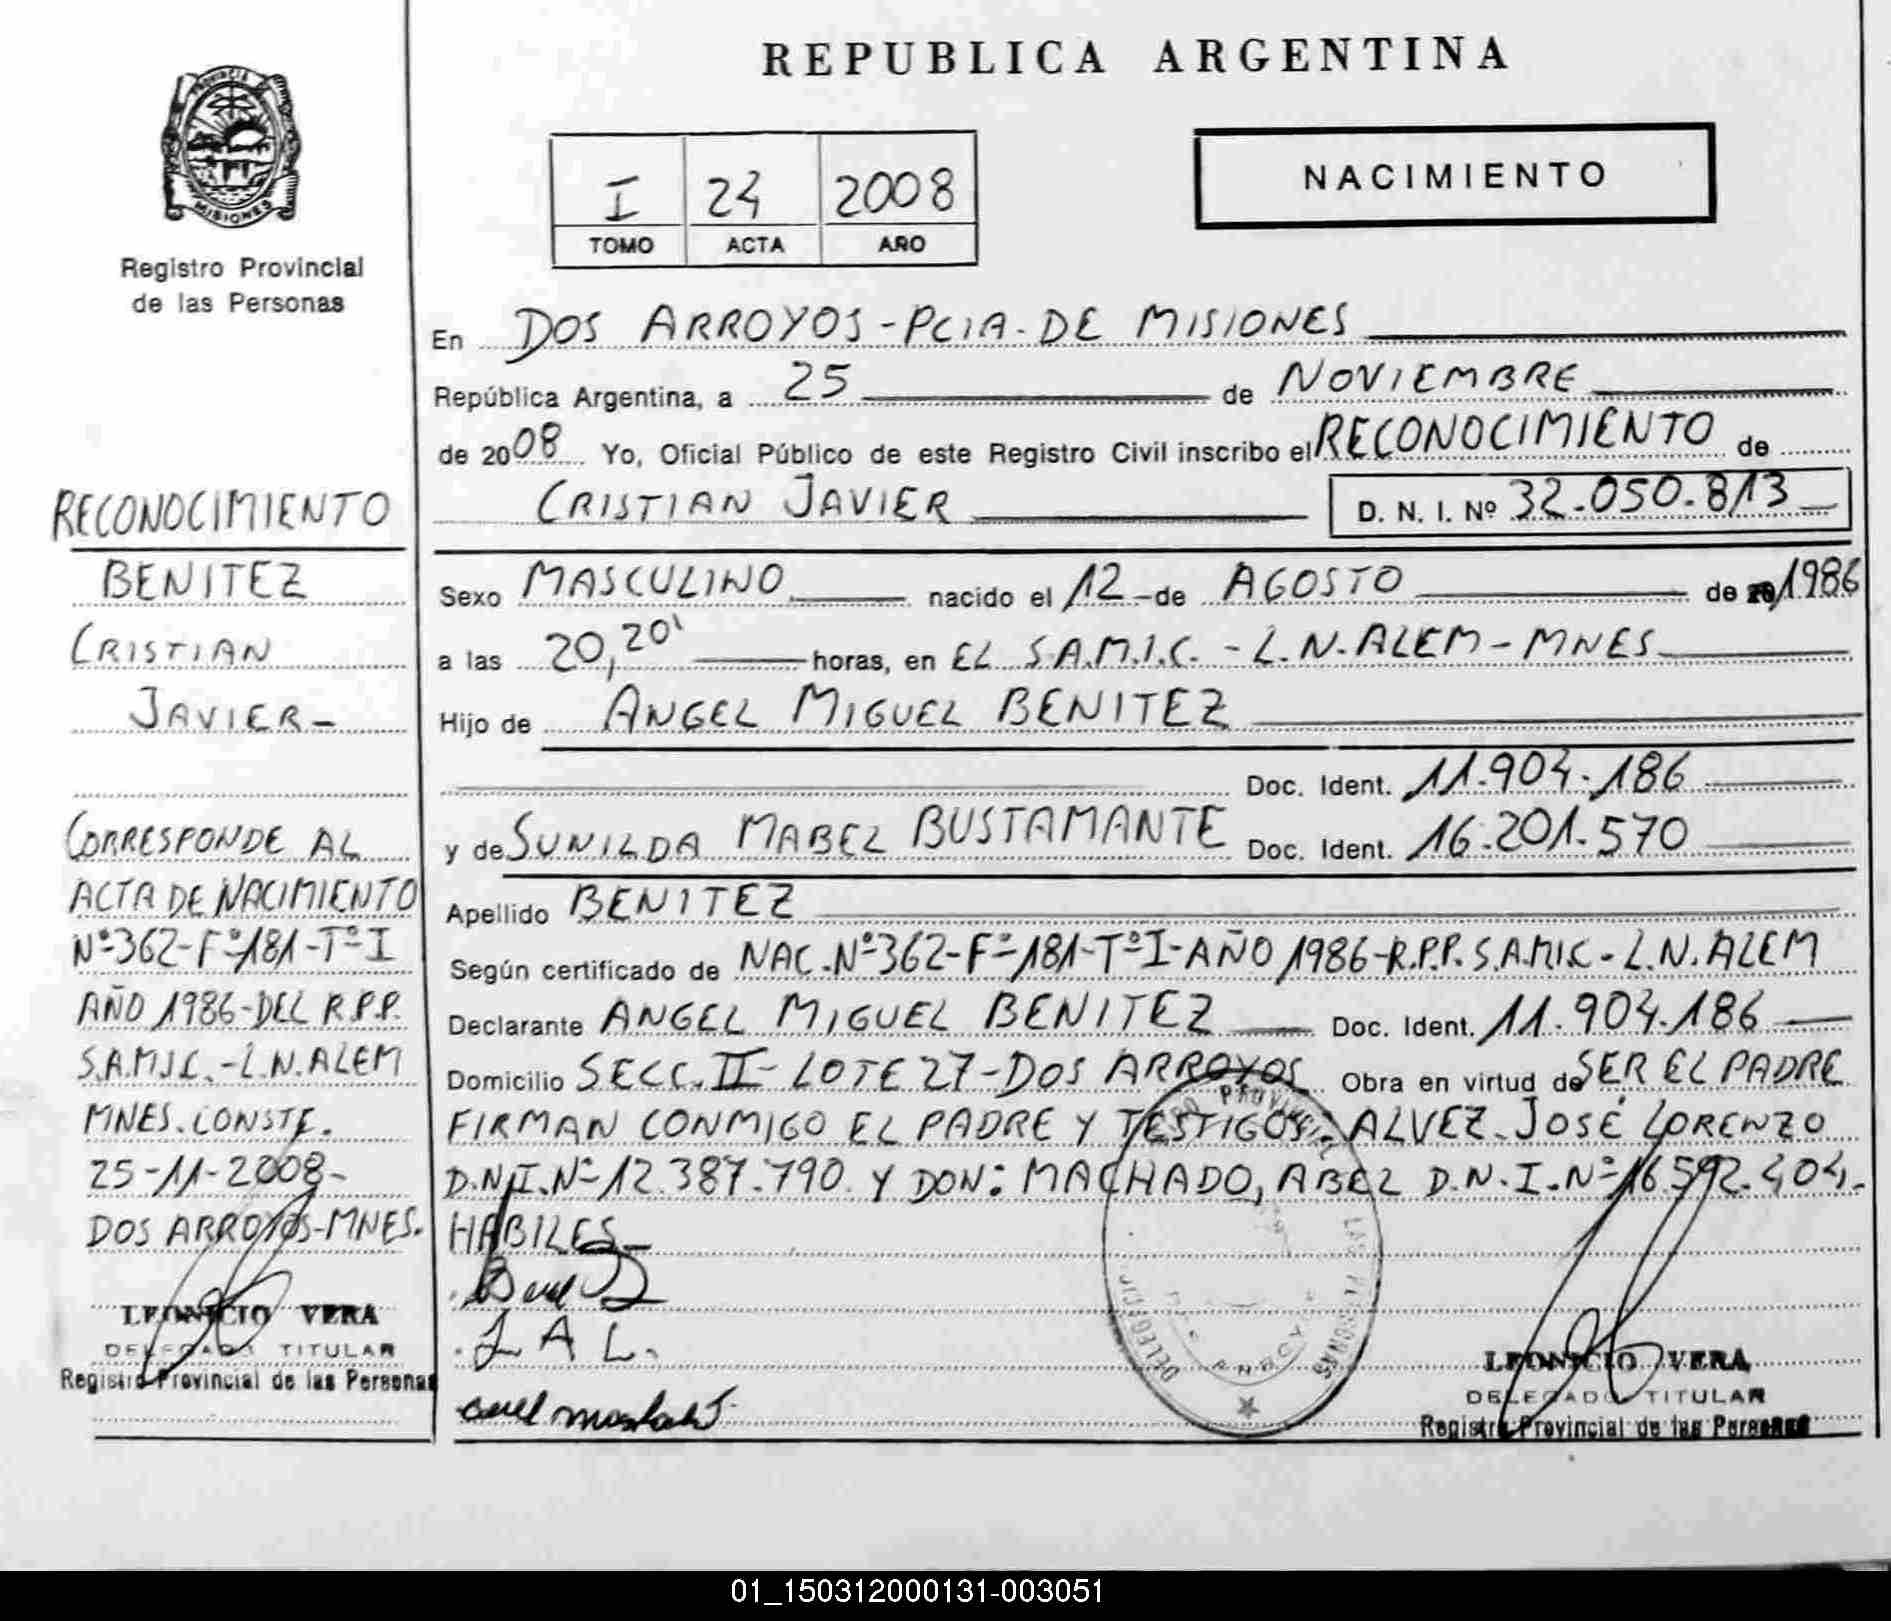 REPUBLICA ARGENTINA
PROVINCIA
MISIONES
Registro Provincial
de las Personas
I 24 2008
TOMO ACTA AÑO
NACIMIENTO
En DOS ARROYOS-PCIA. DE MISIONES
República Argentina, a 25 de NOVIEMBRE
de 2008 Yo, Oficial Público de este Registro Civil inscribo el RECONOCIMIENTO de
CRISTIAN JAVIER D. N. I. Nº 32.050.813
Sexo MASCULINO nacido el 12 - de AGOSTO de 1986
a las 20,20' horas, en EL S.A.M.I.C. - L.N. ALEM - MNES
Hijo de ANGEL MIGUEL BENITEZ
Doc. Ident. 11.904.186
y de SUNILDA MABEL BUSTAMANTE Doc. Ident. 16.201.570
Apellido BENITEZ
Según certificado de NAC. Nº 362-Fº 181-Tº I-AÑO 1986-R.P.P. S.A.M.I.C. - L.N. ALEM
Declarante ANGEL MIGUEL BENITEZ Doc. Ident. 11.904.186
Domicilio SECC. II - LOTE 27-DOS ARROYOS Obra en virtud de SER EL PADRE
FIRMAN CONMIGO EL PADRE Y TESTIGOS ALVEZ JOSÉ LORENZO
D.N.I. Nº 12.387.790. Y DON: MACHADO, ABEL D.N.I. Nº 16.592.404.
HABILES
J A L.
LEONICIO VERA
DELEGADO TITULAR
Registro Provincial de las Personas
RECONOCIMIENTO
BENITEZ
CRISTIAN
JAVIER-
CORRESPONDE AL
ACTA DE NACIMIENTO
Nº 362-Fº 181-Tº I
AÑO 1986-DEL R.P.P.
S.A.M.I.C.-L.N. ALEM
MNES. CONSTE.
25-11-2008-
DOS ARROYOS-MNES.
LEONICIO VERA
DELEGADO TITULAR
Registro Provincial de las Personas
01_150312000131-003051